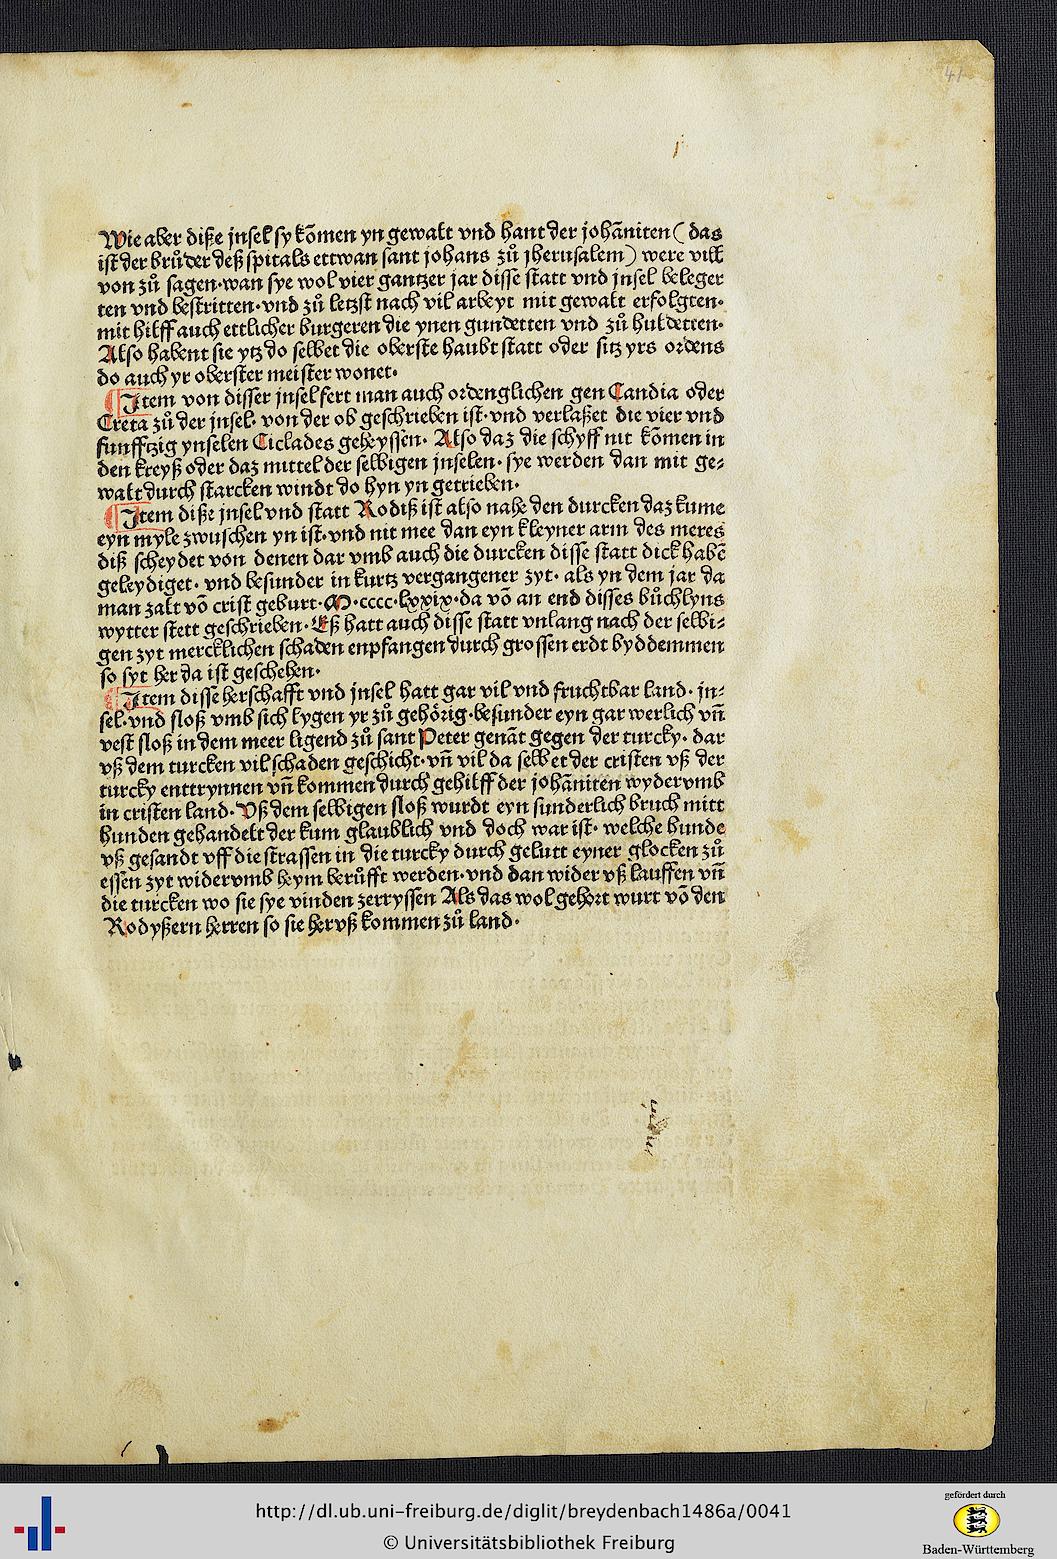 41
Wie aber diße jnsel sy kōmen yn gewalt vnd hant der johāniten (das
ist der brůder deß spitals ettwan sant johans zů jherusalem) were vill
von zů sagen·wan sye wol vier gantzer jar disse statt vnd jnsel beleger
ten vnd bestritten·vnd zů letzst nach vil arbeyt mit gewalt erfolgten·
mit hilff auch ettlicher burgeren die ynen gundetten vnd zů huldetten·
Also habent sie ytz do selbet die oberste haubt statt oder sitz yrs ordens
do auch yr oberster meister wonet·
Item von disser jnsel fert man auch ordenglichen gen Candia oder
Creta zů der jnsel· von der ob geschrieben ist·vnd verlaßet die vier vnd
funfftzig ynselen Ciclades geheyssen· Also daz die schyff nit kōmen in
den kreyß oder daz mittel der selbigen jnselen· sye werden dan mit ge⸗
walt durch starcken windt do hyn yn getrieben·
Item diße jnsel vnd statt Rodiß ist also nahe den durcken daz kume
eyn myle zwuschen yn ist·vnd nit mee dan eyn kleyner arm des meres
diß scheydet von denen dar vmb auch die durcken disse statt dick habē
geleydiget· vnd besunder in kurtz vergangener zyt· als yn dem jar da
man zalt vō crist geburt·M·cccc·lxxix·da vō an end disses bůchlyns
wytter stett geschrieben·Eß hatt auch disse statt vnlang nach der selbi⸗
gen zyt mercklichen schaden enpfangen durch grossen erdt byddemmen
so syt her da ist geschehen·
Item disse herschafft vnd jnsel hatt gar vil vnd fruchtbar land· jn⸗
sel·vnd sloß vmb sich lygen yr zů gehörig·besunder eyn gar werlich vñ
vest sloß in dem meer ligend zů sant Peter genāt gegen der turcky· dar
vß dem turcken vil schaden geschicht·vñ vil da selbet der cristen vß der
turcky enttrynnen vñ kommen durch gehilff der johāniten wydervmb
in cristen land·Vß dem selbigen sloß wurdt eyn sunderlich bruch mitt
hunden gehandelt der kum glaublich vnd doch war ist· welche hunde
vß gesandt vff die strassen in die turcky durch gelutt eyner glocken zů
essen zyt widervmb heym berůfft werden·vnd dan wider vß lauffen vñ
die turcken wo sie sye vinden zerryssen Als das wol gehort wurt vō den
Rodyßern herren so sie her vß kommen zů land·
http://dl.ub.uni-freiburg.de/diglit/breydenbach1486a/0041
© Universitätsbibliothek Freiburg
gefördert durch
Baden-Württemberg